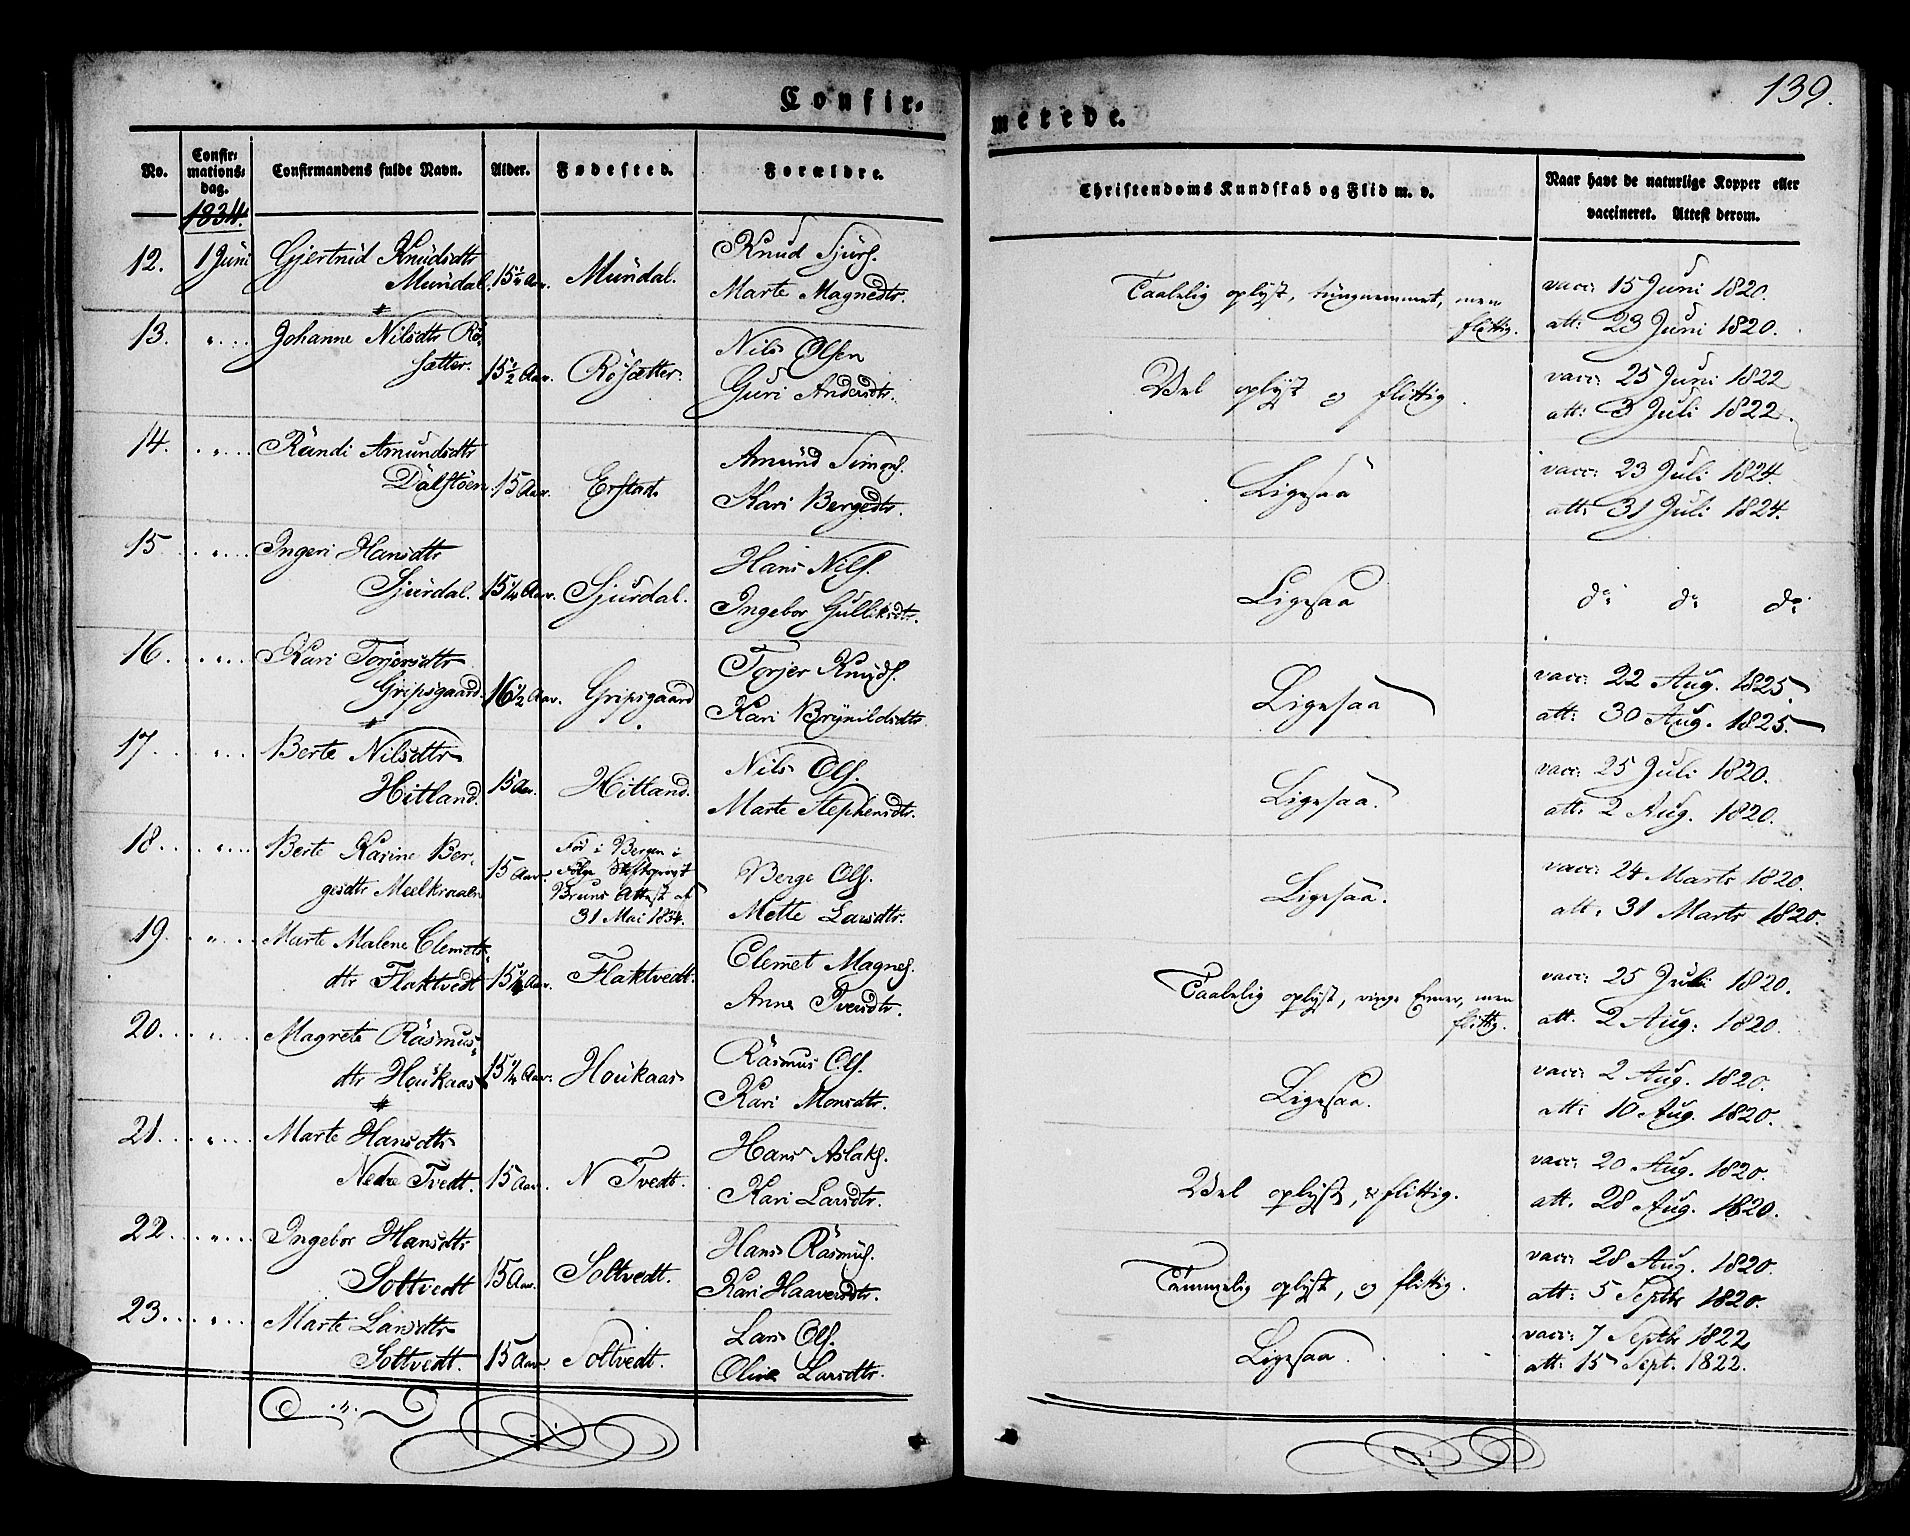 139.
Confir-
merede.
No.
Confir-
mations-
dag.
1834.
Confirmandens fulde Navn.
Alder.
Fødested.
Forældre.
Christendoms Kundskab og Flid m. v.
Naar havt de naturlige Kopper eller
vaccineret. Attest derom.
12. 1 Juni Gjertrud Knudsdtr Knud Sjurs.
Mundal. 15 1/4 Aar. Mundal. Marte Magnedtr.
Taalelig oplyst, tungnemmet, men
flittig.
vacc: 15 Juni 1820.
att: 23 Juni 1820.
13. " Johanne Nilsdtr Rö-
sætter. 15 1/2 Aar. Rösætter.
Nils Olsen
Guri Andersdtr.
Vel oplyst og flittig.
vacc: 25 Juni 1822
att: 3 Juli 1822.
14. " Randi Amundsdtr
Dalstöen. 15 Aar. Erstad.
Amund Simons.
Kari Bergedtr.
Ligesaa
vacc: 23 Juli 1824.
att: 31 Juli 1824.
15 " Ingeri Hansdtr
Sjurdal. 15 1/4 Aar. Sjurdal.
Hans Nils.
Ingebor Gulliksdtr.
Ligesaa
do do do
16. " Kari Torjersdtr
Gripsgaard. 16 1/2 Aar. Gripsgaard
Torjer Knuds.
Kari Brynildsdtr.
Ligesaa
vacc: 22 Aug. 1825
att: 30 Aug. 1825
17. " Berte Nilsdtr
Hitland. 15 Aar. Hitland.
Nils Ols.
Marte Stephensdtr.
Ligesaa.
vacc: 25 Juli 1820.
att: 2 Aug. 1820.
18. " Berte Karine Ber-
gesdtr Meelkraaln 15 Aar.
Föd i Bergen i
Følge Stiftsprovst
Bruns Attest af
31 Mai 1834.
Berge Ols.
Mette Larsdtr.
Ligesaa.
vacc: 24 Marts 1820.
att: 31 Marts 1820.
19. " Marte Malene Clemets-
dtr Flaktvedt 15 1/4 Aar. Flaktvedt.
Clemet Magnes.
Anne Iversdtr.
Taalelig oplyst, ringe Evner, men
flittig.
vacc: 25 Juli 1820.
att. 2 Aug: 1820.
20. " Magrete Rasmus-
dtr Houkaas 15 1/4 Aar. Houkaas
Rasmus Ols.
Kari Monsdtr.
Ligesaa.
vacc: 2 Aug. 1820.
att: 10 Aug. 1820.
21. " Marte Hansdtr
Nedre Tvedt. 15 Aar. N Tvedt.
Hans Aslaks.
Kari Larsdtr.
Vel oplyst, & flittig.
vacc: 20 Aug. 1820.
att. 28 Aug. 1820.
22. " Ingebor Hansdtr
Soltvedt 15 Aar. Soltvedt.
Hans Rasmus.
Kari Haaversdtr.
Temmelig oplyst, og flittig.
vacc: 28 Aug. 1820.
att: 5 Septbr 1820.
23. " Marte Larsdtr
Soltvedt. 15 Aar Soltvedt.
Lars Ols.
Oline Larsdtr.
Ligesaa.
vacc: 7 Septbr 1822
att: 15 Sept. 1822.